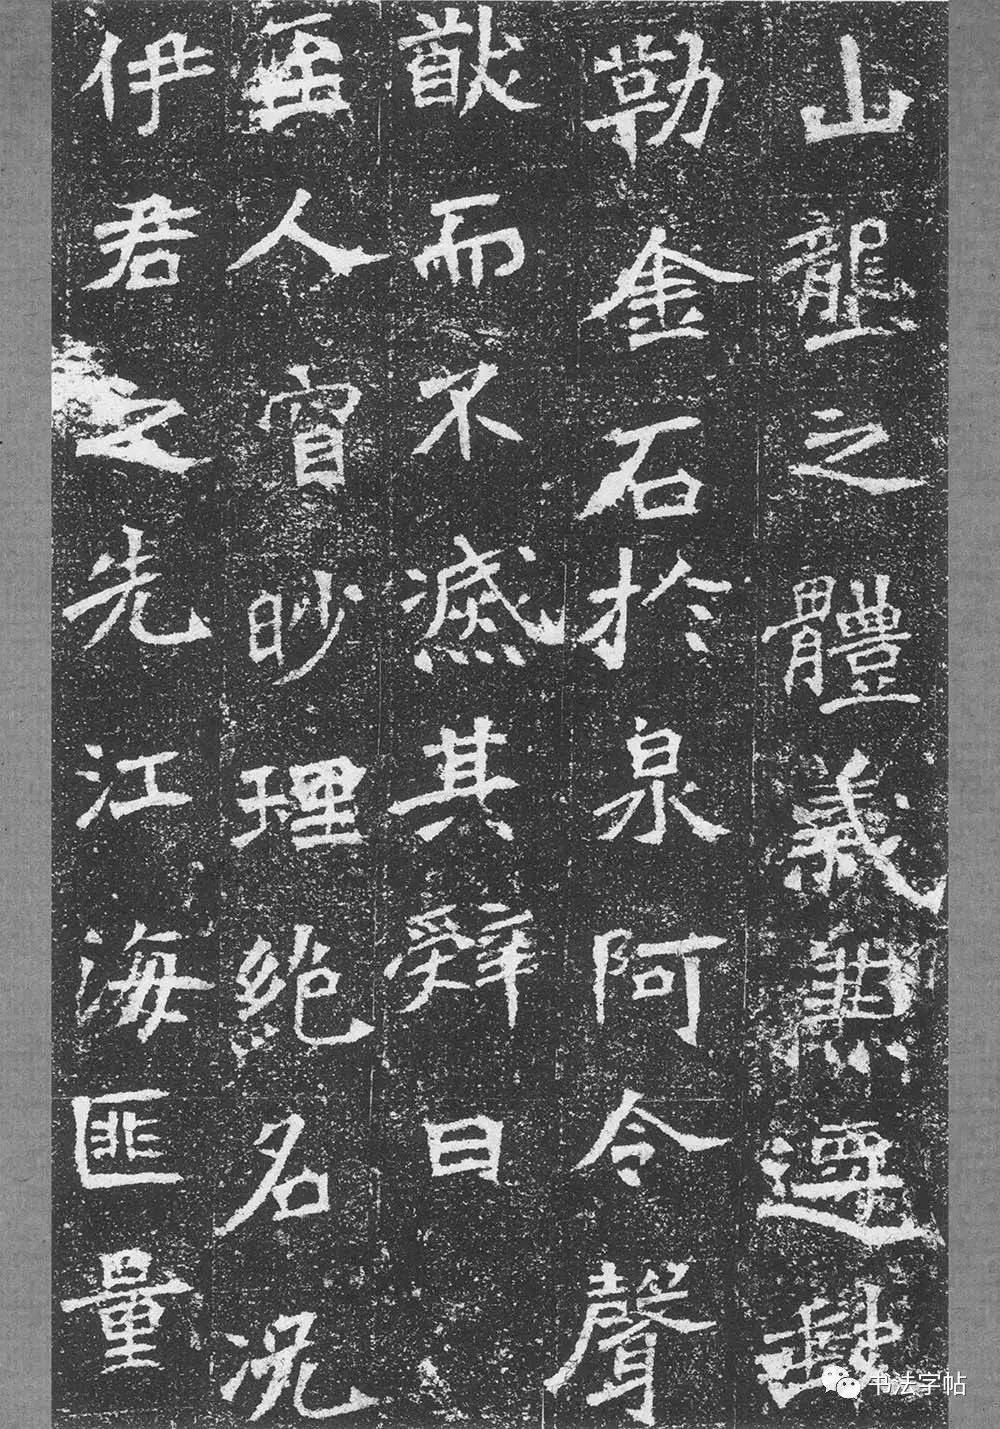 山壟之體義無
勒金石於泉阿令聲
猷而不滅其辭曰
至人窅眇理絶名况
伊君之先江海匪量
书法字帖